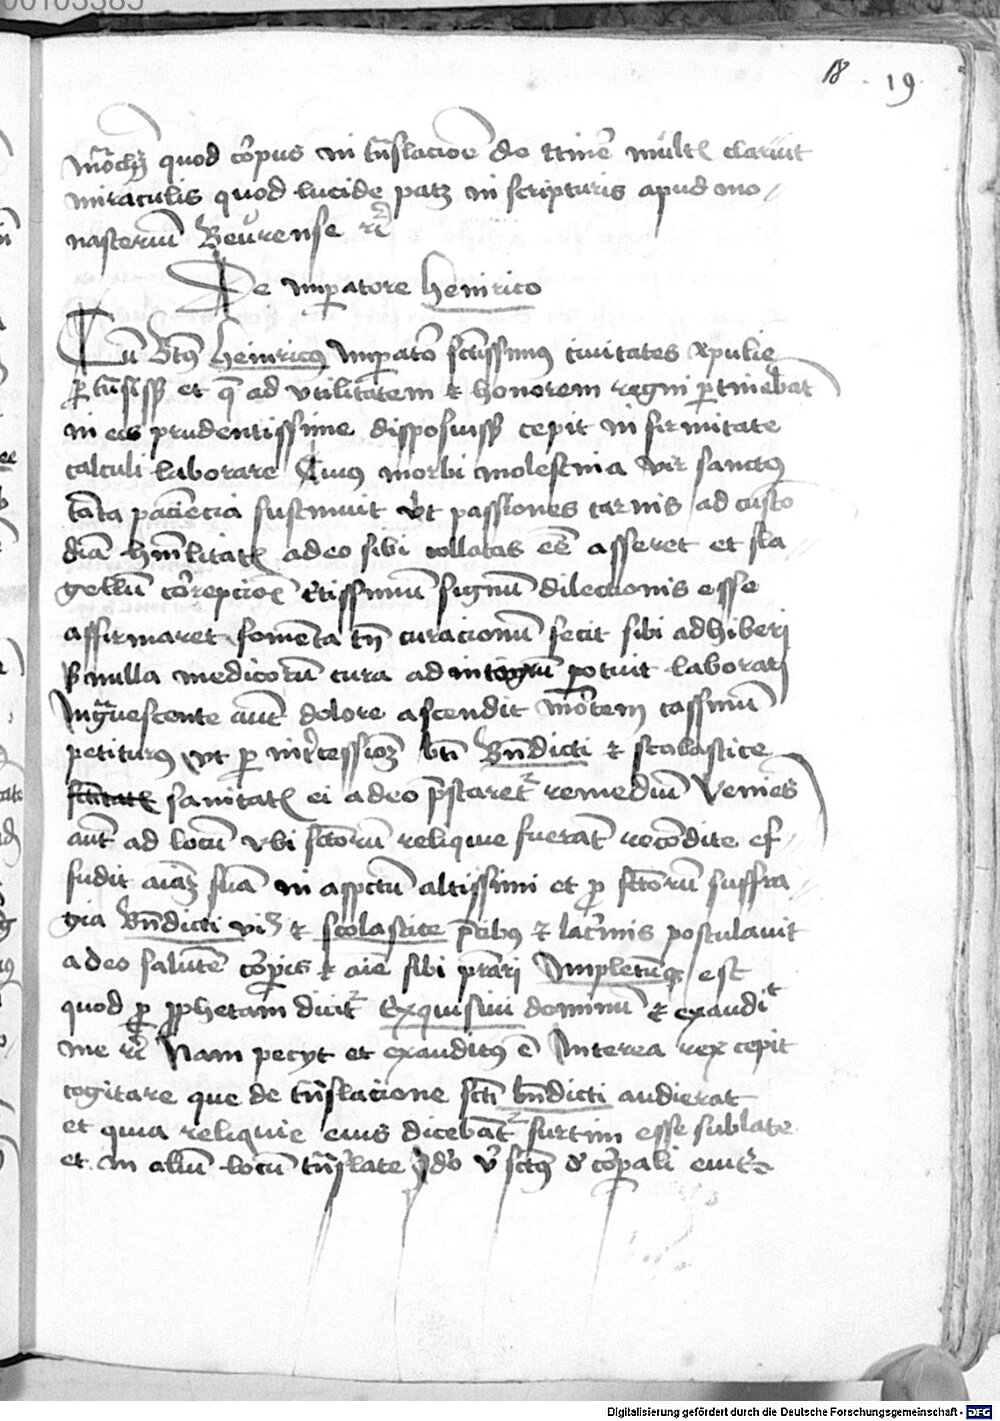 00103385
18 19
quod corpus in trãslacioe de itinẽ mult clarũit
miraculis quod lucide patz in scripturis apud mo-
nasteriũ Beũrense rc̃
De imperatore Heinrico
Cũ btũs Heinricus imperator sctissimus civitates Apulie
et q̃ ad vtilitatem et honorem regni pertinebãt
in eis prudentissime disposuiss cepit infirmitate
calculi laborare Cuius morbi molestiia vir sanctus
tãta paciẽcia sustinuit ut passiones carnis ad custo
diã hũilitat adeo sibi collatas eẽ asseret et fla-
gellũ cor̃repciõ c̃tissimũ signũ dilectionis esse
affirmaret fomẽta tñ curacionũ fecit sibi adhiberi
s nulla medicorũ cura ad integrũ potuit laborari
Ingrãuescente aũt dolore ascendit mõtem cassinũ
petiturus ut per inter̃cessioz bti Bñdicti et scolastice
sanitat ei a deo p̃staret remediũ Veniẽs
aũt ad locũ vbi sctorũ reliquie fuerãt recõdite ef-
fudit aĩaz suã in aspctũ altissimi et per sctorũ suffra-
gia Bñdicti et scolastice p̃cibus et lacr̃imis postulavit
a deo salutẽ corp̃is et aĩe sibi Impletũq est
quod per prophetam dicit Exquisiui dominũ et exaudit
me rc̃ Nam pecyt et exauditus ẽ Interea rex cepit
cogitare que de trãslacione scti bñdicti audierat
et quia reliquie eius dicebãt furtim esse sublate
et in aliũ locũ trãslate sctus corp̃ali
Digitalisierung gefördert durch die Deutsche Forschungsgemeinschaft - DFG